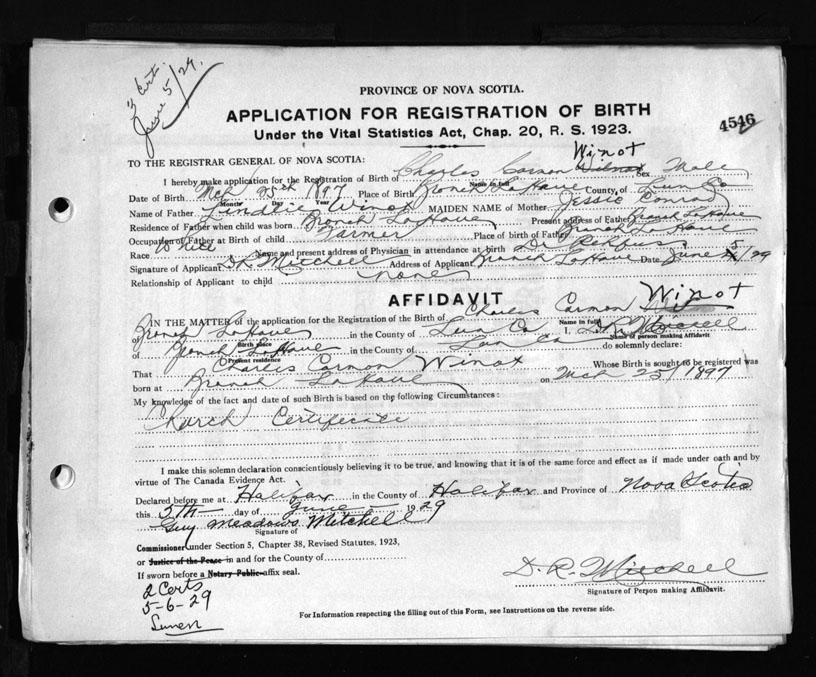 3 Cert.
June 5/29.
PROVINCE OF NOVA SCOTIA.
APPLICATION FOR REGISTRATION OF BIRTH
4546
Under the Vital Statistics Act, Chap. 20, R. S. 1923.
TO THE REGISTRAR GENERAL OF NOVA SCOTIA:
Winot
I hereby make application for the Registration of Birth of Charles Carmon Sex Male
Name in full
Date of Birth Mch 25th 1897 Place of Birth Branch LaHave County of Lun Co
Month Day Year
Name of Father Lindlie Winot MAIDEN NAME of Mother Jessie Conrad
Residence of Father when child was born Branch LaHave Present address of Father Branch LaHave
Occupation of Father at Birth of child Farmer Place of birth of Father Branch LaHave
Race White Name and present address of Physician in attendance at birth Dr
Signature of Applicant Mitchell Address of Applicant Branch LaHave Date June 5/29
Relationship of Applicant to child none
AFFIDAVIT
IN THE MATTER of the application for the Registration of the Birth of Charles Carmon Winot
Name in full
of Branch LaHave in the County of Lun Co I, D R Mitchell
Birth place Name of person making Affidavit
of Branch LaHave in the County of Lun Co do solemnly declare:
Present residence
That Charles Carmon Winot Whose Birth is sought to be registered was
born at Branch LaHave on Mch 25/1897
My knowledge of the fact and date of such Birth is based on the following Circumstances:
Church Certificate
I make this solemn declaration conscientiously believing it to be true, and knowing that it is of the same force and effect as if made under oath and by
virtue of The Canada Evidence Act.
Declared before me at Halifax in the County of Halifax and Province of Nova Scotia
this 5th day of June 1929
Guy Meadows Mitchell
Signature of
Commissioner under Section 5, Chapter 38, Revised Statutes, 1923,
or Justice of the Peace in and for the County of
If sworn before a Notary Public affix seal.
D. R. Mitchell
Signature of Person making Affidavit.
2 Certs
5-6-29
For Information respecting the filling out of this Form, see Instructions on the reverse side.